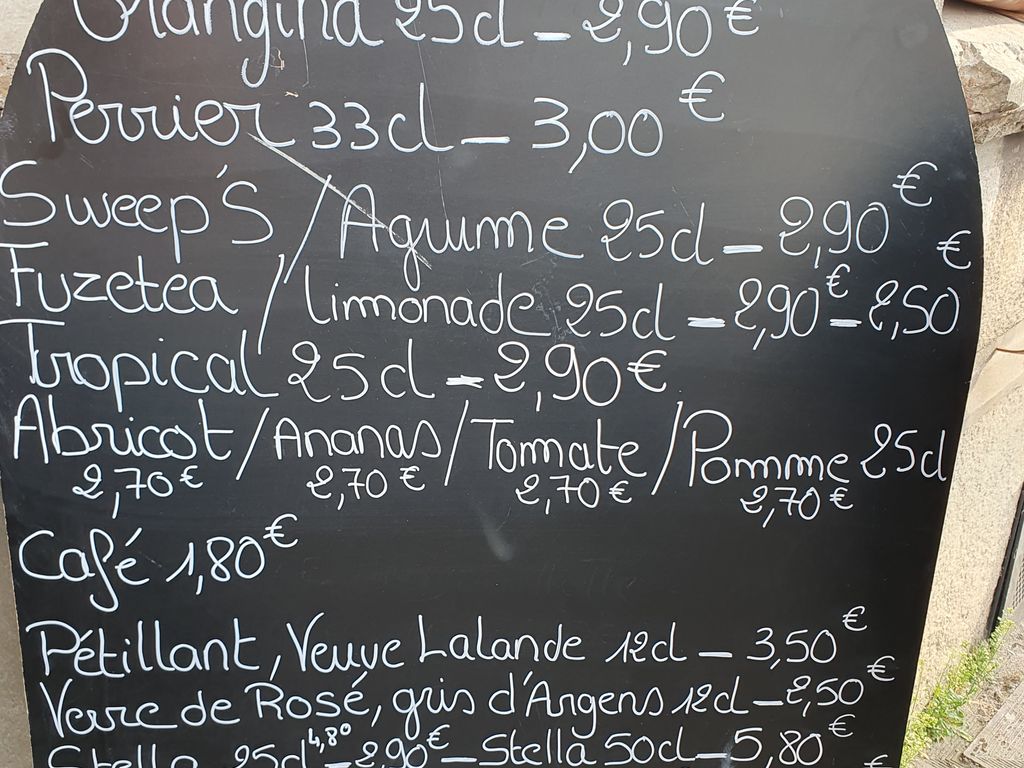 Orangina 25cl - 2,90€
Perrier 33cl - 3,00€
Sweep's / Agume 25cl - 2,90€
Fuzetea / Limonade 25cl - 2,90€ - 2,50€
Tropical 25cl - 2,90€
Abricot / Ananas / Tomate / Pomme 25cl
2,70€ 2,70€ 2,70€ 2,70€
Café 1,80€
Pétillant, Veuve Lalande 12cl - 3,50€
Verre de Rosé, gris d'Argens 12cl - 2,50€
Stella 25cl 4,80 - 2,90€ - Stella 50cl - 5,80€